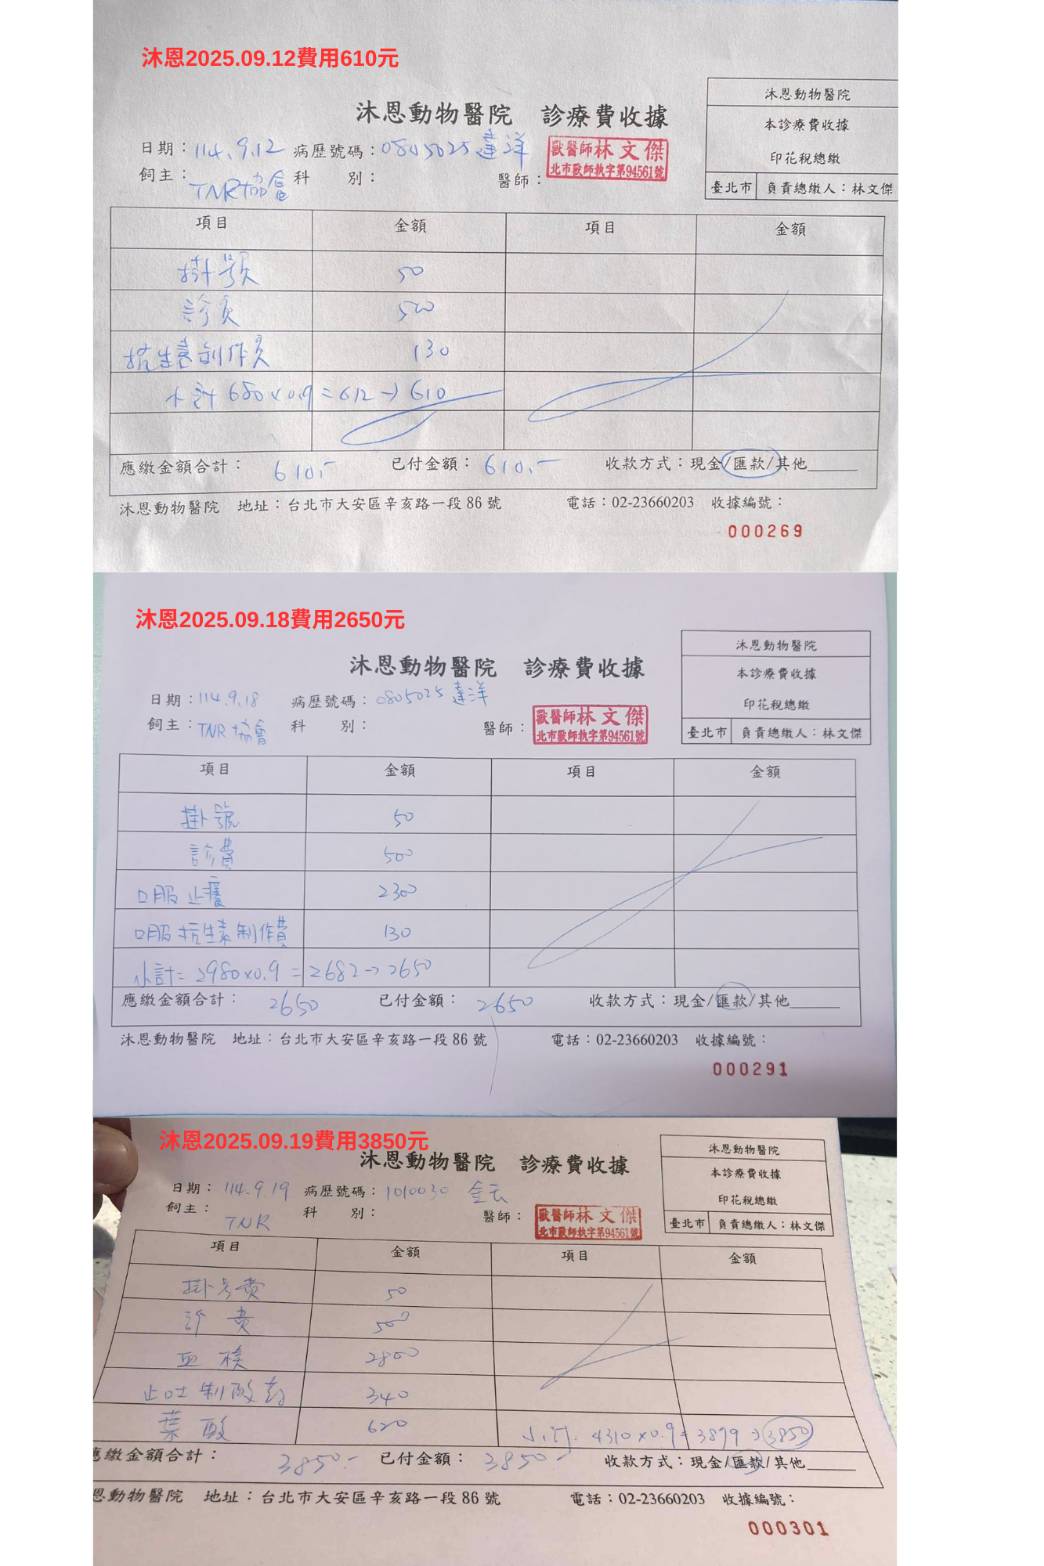 沐恩2025.09.12費用610元
沐恩動物醫院 診療費收據
沐恩動物醫院
本診療費收據
印花稅總繳
臺北市 負責總繳人：林文傑
日期：114.9.12 病歷號碼：0805025 達洋
飼主：TNR協會 科 別： 醫師：
獸醫師林文傑
北市獸師執字第94561號
項目 金額 項目 金額
掛號 50
診費 500
抗生素制作費 130
小計 680×0.9=612→610
應繳金額合計：610.- 已付金額：610.- 收款方式：現金/匯款/其他
沐恩動物醫院 地址：台北市大安區辛亥路一段86號 電話：02-23660203 收據編號：
000269
沐恩2025.09.18費用2650元
沐恩動物醫院 診療費收據
沐恩動物醫院
本診療費收據
印花稅總繳
臺北市 負責總繳人：林文傑
日期：114.9.18 病歷號碼：0805025 達洋
飼主：TNR協會 科 別： 醫師：
獸醫師林文傑
北市獸師執字第94561號
項目 金額 項目 金額
掛號 50
診費 500
口服止癢 2300
口服抗生素制作費 130
小計=2980×0.9=2682→2650
應繳金額合計：2650 已付金額：2650 收款方式：現金/匯款/其他
沐恩動物醫院 地址：台北市大安區辛亥路一段86號 電話：02-23660203 收據編號：
000291
沐恩2025.09.19費用3850元
沐恩動物醫院 診療費收據
沐恩動物醫院
本診療費收據
印花稅總繳
臺北市 負責總繳人：林文傑
日期：114.9.19 病歷號碼：1010030 金云
飼主：TNR 科 別： 醫師：
獸醫師林文傑
北市獸師執字第94561號
項目 金額 項目 金額
掛号費 50
診費 500
血檢 2800
止吐制酸 340
葉酸 620 小計. 4310×0.9=3879→3850
應繳金額合計：3850.- 已付金額：3850.- 收款方式：現金/匯款/其他
恩動物醫院 地址：台北市大安區辛亥路一段86號 電話：02-23660203 收據編號：
000301